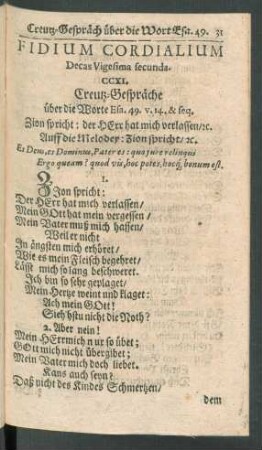 Creutz-Gespräch über die Wort Esa. 49. 31
FIDIUM CORDIALIUM
Decas Vigesima secunda.
CCXI.
Creutz-Gespräche
über die Worte Esa. 49. v. 14. & seq.
Zion spricht; der HErr hat mich verlassen/ꝛc.
Auff die Melodey: Zion spricht/ ꝛc.
Es Deus, es Dominus, Pater es: qua jure relinqui
Ergo queam? quod vis, hoc potes, hocq́; bonum est.
1.
Zion spricht:
Der HErr hat mich verlassen/
Mein GOtt hat mein vergessen/
Mein Vater muß mich hassen/
Weil er nicht
In ängsten mich erhöret/
Wie es mein Fleisch begehret/
Läßt mich so lang beschweret.
Ich bin so sehr geplaget/
Mein Hertze weint und klaget:
Ach mein GOtt!
Sieh'stu nicht die Noth?
2. Aber nein!
Mein HErr mich nur so übet;
GOtt mich nicht übergibet;
Mein Vater mich doch liebet.
Kans auch seyn?
Daß nicht des Kindes Schmertzen/
dem